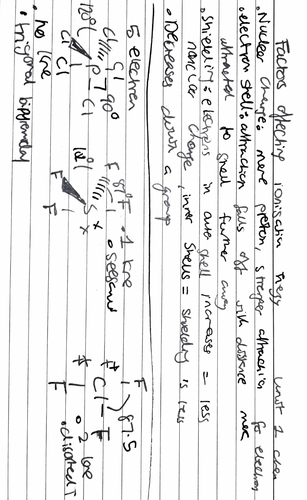 Factors affecting ionisation energy Unit 1 chem
• Nuclear charge: more protons, stronger attraction for electron
• electron shell: attraction falls off with distance more
attraction to shell further away
• Shielding: electrons in outer shell increases = less
nuclear charge, inner shells = shielding is less
• Decreases down a group
5 electron
Cl Cl
120° P 90°
Cl Cl
Cl
• no lone
• trigonal bipyramidal
F 87° F • 1 lone
S x x • seesaw
F
F
F
87.5
F Cl - F • 2 lone
F • distorted T